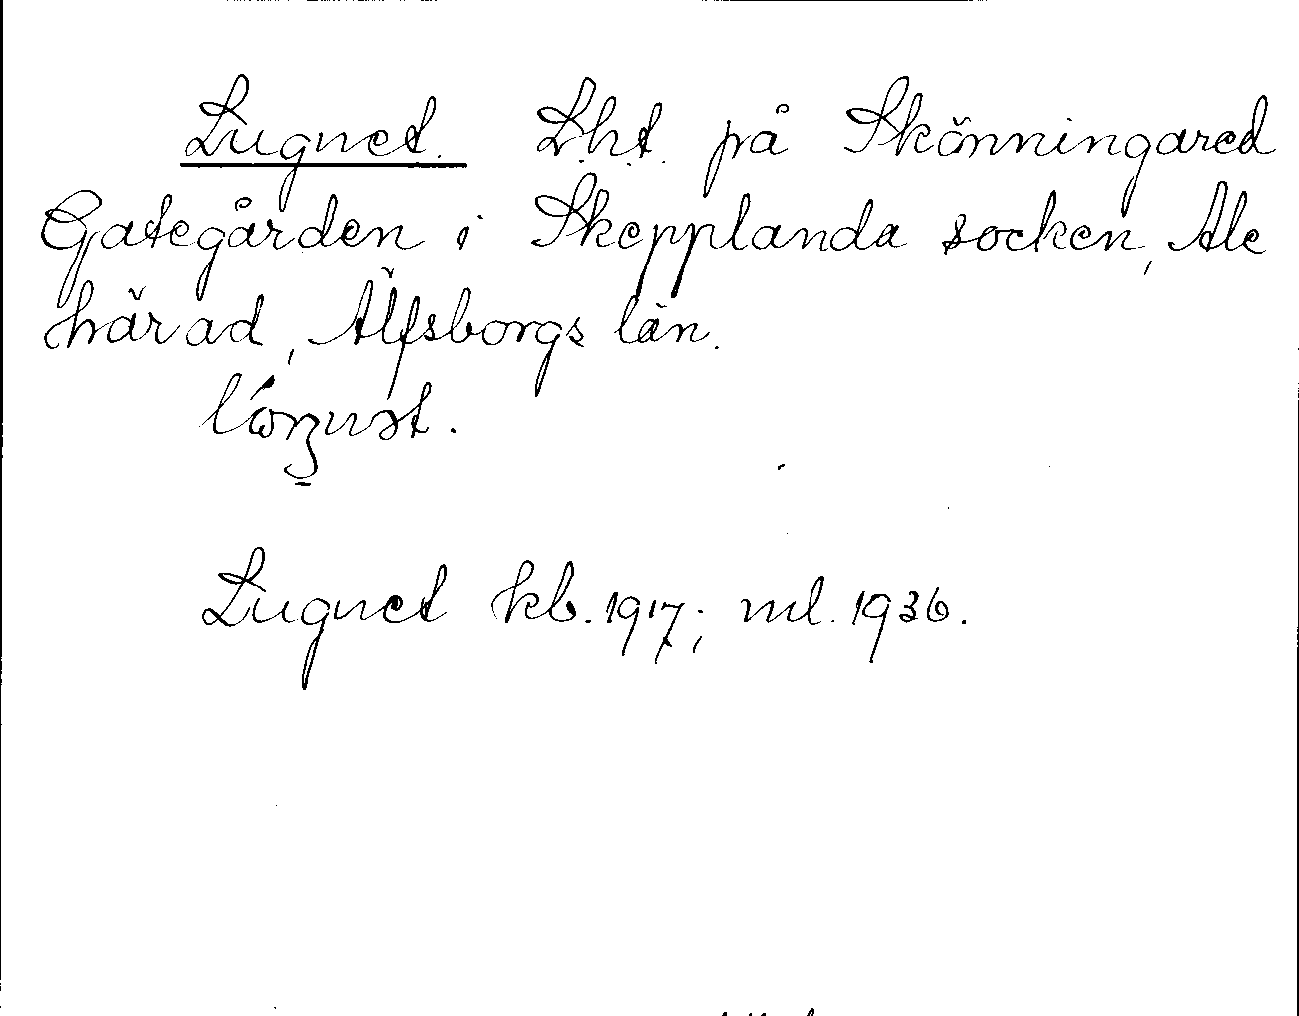 Lugnet. L.h.t. på Skönningared
Gategården i Skepplanda socken, Ale
härad, Älfsborgs län.
Lugnet kb. 1917; ml. 1936.